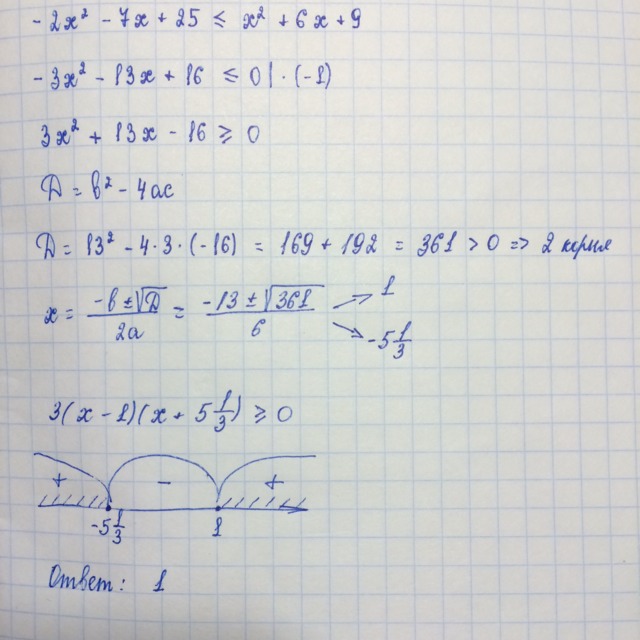 -2x² - 7x + 25 ≤ x² + 6x + 9
-3x² - 13x + 16 ≤ 0 | · (-1)
3x² + 13x - 16 ≥ 0
D = b² - 4ac
D = 13² - 4·3·(-16) = 169 + 192 = 361 > 0 => 2 корня
x = (-b ± √D)/2a = (-13 ± √361)/6 → 1
→ -5 1/3
3(x - 1)(x + 5 1/3) ≥ 0
+ - +
-5 1/3 1
Ответ: 1